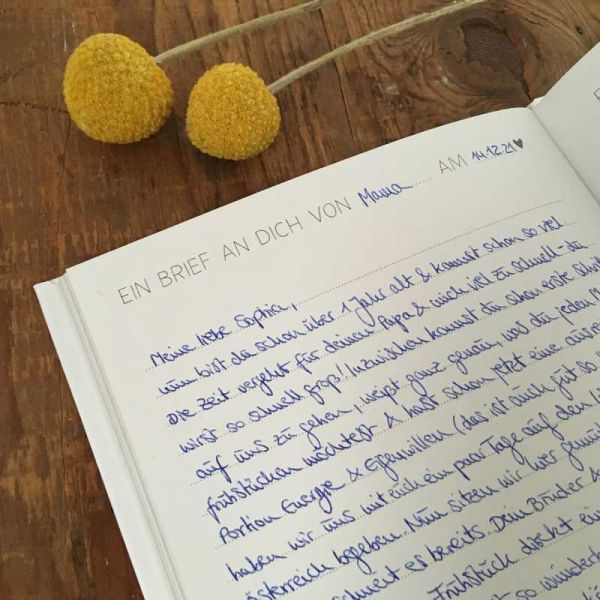 EIN BRIEF AN DICH VON Mama AM 14.12.21♥
Meine liebe Sophia,
nun bist du schon über 1 Jahr alt & kannst schon so viel.
Die Zeit vergeht für deinen Papa & mich viel zu schnell - du
wirst so schnell groß! Inzwischen kannst du schon erste Schri
auf uns zu gehen, weißt ganz genau, was du jeden M
frühstücken möchtest & hast schon jetzt eine ausrei
Portion Energie & Eigenwillen (das ist auch gut so
haben wir uns mit euch ein paar Tage auf den
Österreich begeben. Nun sitzen wir hier
schneit es bereits. Dein Bruder &
Frühstück direkt ein
so wunder